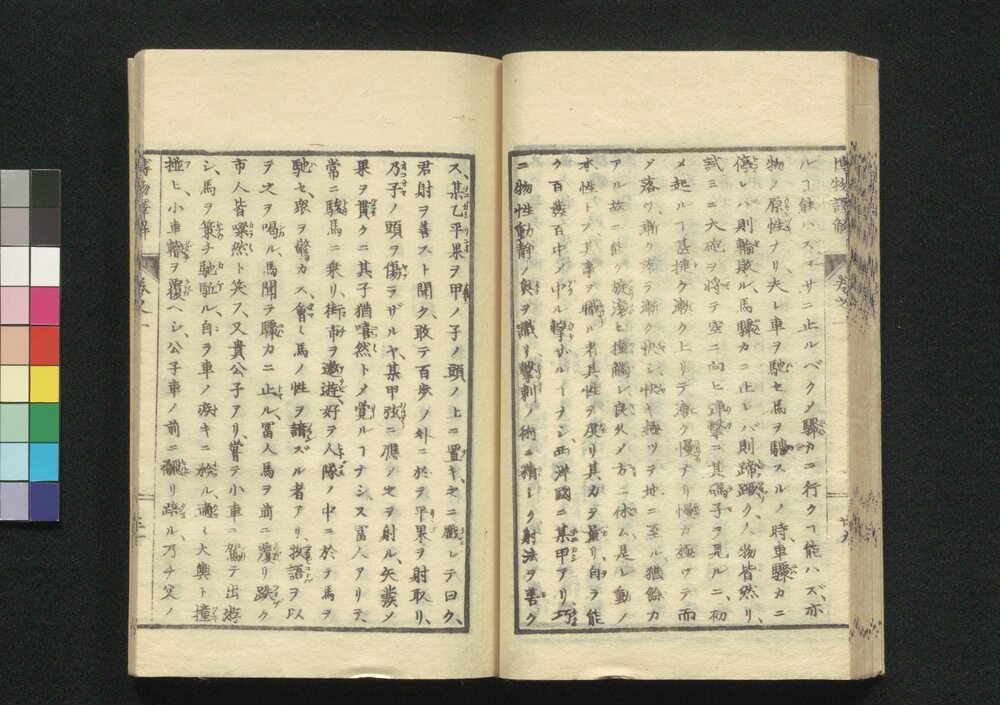 博物語解
卷之一
ルヿ能ハズマサニ止ルベクメ驟カニ行クヿ能ハズ、亦
物ノ原性ナリ夫レ車ヲ馳セ馬ヲ驅スルノ時、車驟カニ
停レバ則輪敗ル馬驟カニ止レバ則蹄躓ク物皆然リ、
試ミニ大砲ヲ将テ空ニ向ヒ弾撃ニ其碼子ヲ見ルニ、初
メ起ルヿ甚捷ク漸ク上リテ漸ク慢ナリ慢カ極ツテ而
メ落ツ漸ク落テ漸ク快シ快キ極ツテ地ニ至ル猶餘力
アル故ニ能ク旋滚ヒ撞觸レ良久ノ方ニ休ム是レ動ノ
本性トス其事ヲ職ル者其性ヲ度リ其力ヲ量リ自ラ能
ク百發百中ノ中ル撃ザルーナシ西洲國ニ某甲アリ、巧
ニ物性動静ノ奥ヲ識リ撃刺ノ術ニ精シク射法ヲ善ク
ス、某乙平果ヲ甲ノ子ノ頭ノ上ニ置キ之ニ戯レテ曰ク、
君射ヲ善スト聞ク敢テ百歩ノ外ニ於テ平果ヲ射取リ、
乃子ノ頭ヲ傷ラザルヤ、某甲弦ニ應ノ之ヲ射ル、矢發メ
果ヲ貫クニ其子猶嘻然トメ覚ルヿナシ又冨人アリテ、
常ニ駿馬ニ乗リ街市ヲ遨遊好ヲ人隊ノ中ニ於テ馬ヲ
馳セ、衆ヲ驚カス會し馬ノ性ヲ諳ズル者アリ物語ヲ以
テ之ヲ喝ル、馬聞ヲ驟カニ止ル、冨人馬ヲ前ニ覆リ跌ク
市人皆噱然ト笑フ、又貴公子アリ、嘗テ小車ニ駕テ出游
シ、馬ヲ策チ馳駈ル自ラ車ノ疾キニ於ル、適し大輿ト撞
挃ヒ、小車輪ヲ覆ヘシ、公子車ノ前ニ飜リ踣ル乃チ父ノ